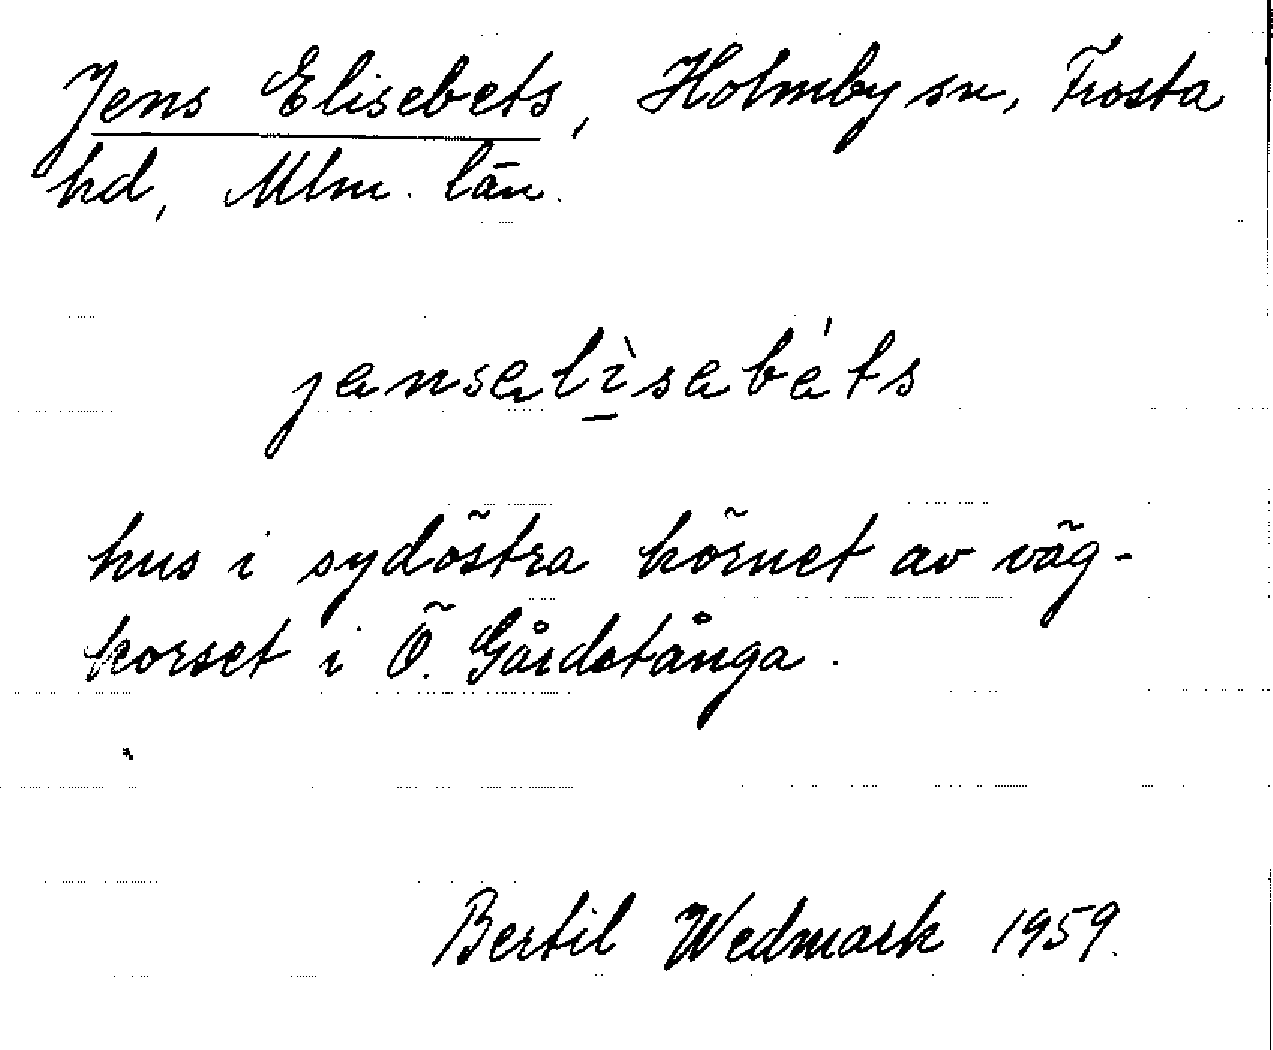 Jens Elisebets, Holmby sn, Frosta
hd, Mlm. län.
jansalìsabáts
hus i sydöstra hörnet av väg-
korset i Ö. Gårdstånga.
Bertil Wedmark 1959.